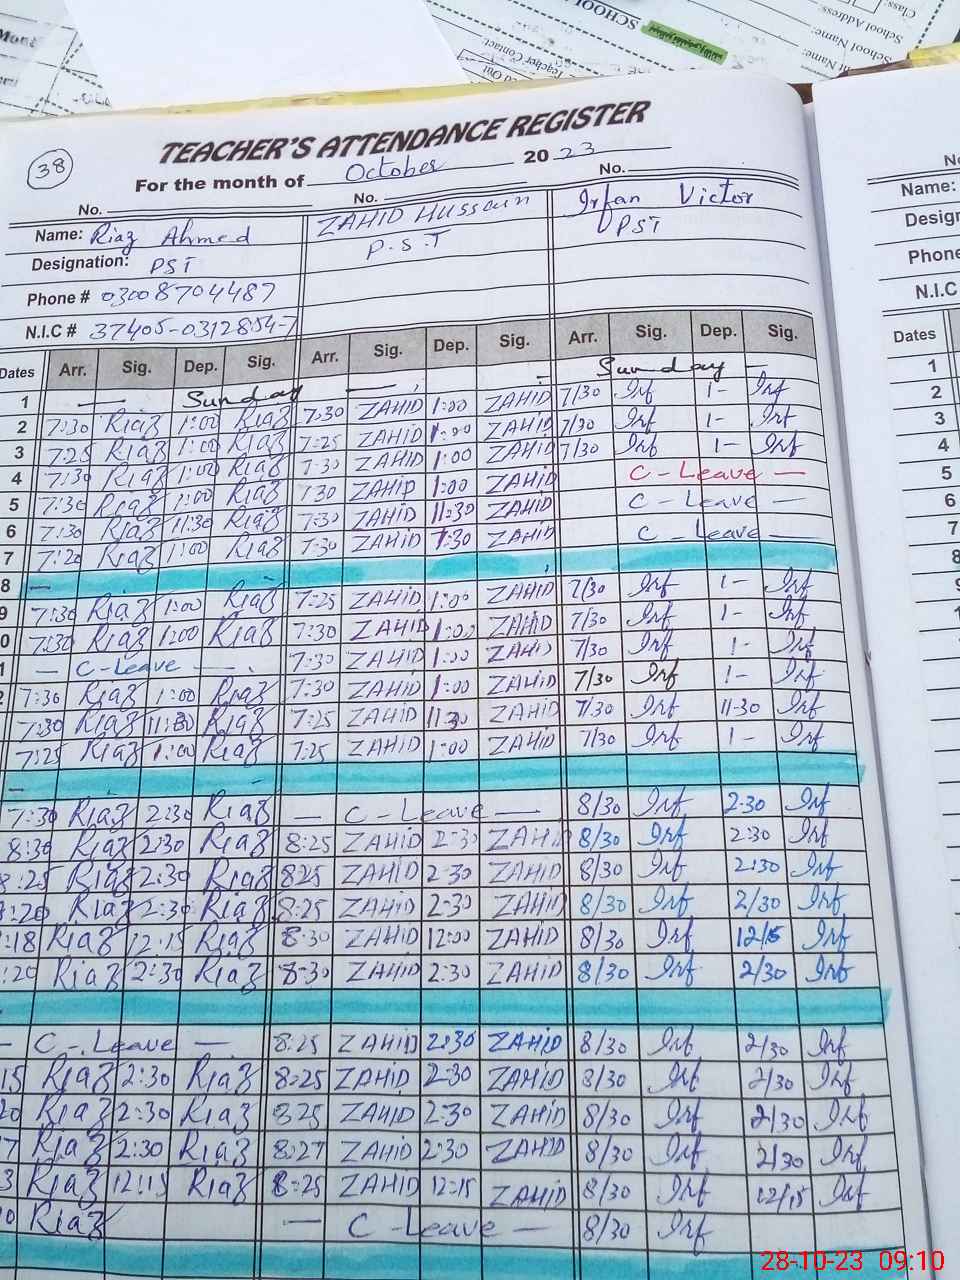 SCHOOL
Teacher Contact:
School Name:
School Address:
Class:
38
TEACHER'S ATTENDANCE REGISTER
For the month of October 2023
No. No. No.
Name: Riaz Ahmed ZAHID HUSSain Irfan Victor
Designation: PST P.S.T PST
Phone # 03008704487
N.I.C # 37405-0312854-7
Dates Arr. Sig. Dep. Sig. Arr. Sig. Dep. Sig. Arr. Sig. Dep. Sig.
1 — Sunday — Sunday —
2 7:30 Riaz 1:00 Riaz 7:30 ZAHID 1:00 ZAHID 7/30 Irf 1- Irf
3 7:25 Riaz 1:00 Riaz 7:25 ZAHID 1:00 ZAHID 7/30 Irf 1- Irf
4 7:30 Riaz 1:00 Riaz 7:30 ZAHID 1:00 ZAHID 7/30 Irf 1- Irf
5 7:30 Riaz 1:00 Riaz 7:30 ZAHID 1:00 ZAHID C-Leave —
6 7:30 Riaz 11:30 Riaz 7:30 ZAHID 11:30 ZAHID C-Leave —
7 7:20 Riaz 1:00 Riaz 7:30 ZAHID 1:30 ZAHID C-Leave —
8 —
9 7:30 Riaz 1:00 Riaz 7:25 ZAHID 1:00 ZAHID 7/30 Irf 1- Irf
0 7:30 Riaz 1:00 Riaz 7:30 ZAHID 1:00 ZAHID 7/30 Irf 1- Irf
1 — C-Leave — 7:30 ZAHID 1:00 ZAHID 7/30 Irf 1- Irf
2 7:30 Riaz 1:00 Riaz 7:30 ZAHID 1:00 ZAHID 7/30 Irf 1- Irf
7:30 Riaz 11:30 Riaz 7:25 ZAHID 11:30 ZAHID 7/30 Irf 11-30 Irf
7:25 Riaz 1:00 Riaz 7:25 ZAHID 1:00 ZAHID 7/30 Irf 1- Irf
—
7:30 Riaz 2:30 Riaz — C-Leave — 8/30 Irf 2:30 Irf
8:30 Riaz 2:30 Riaz 8:25 ZAHID 2:30 ZAHID 8/30 Irf 2:30 Irf
8:25 Riaz 2:30 Riaz 8:25 ZAHID 2:30 ZAHID 8/30 Irf 2:30 Irf
:20 Riaz 2:30 Riaz 8:25 ZAHID 2:30 ZAHID 8/30 Irf 2/30 Irf
:18 Riaz 12:15 Riaz 8:30 ZAHID 12:00 ZAHID 8/30 Irf 12/15 Irf
:20 Riaz 2:30 Riaz 8:30 ZAHID 2:30 ZAHID 8/30 Irf 2/30 Irf
— C-Leave — 8:25 ZAHID 2:30 ZAHID 8/30 Irf 2/30 Irf
15 Riaz 2:30 Riaz 8:25 ZAHID 2:30 ZAHID 8/30 Irf 2/30 Irf
20 Riaz 2:30 Riaz 8:25 ZAHID 2:30 ZAHID 8/30 Irf 2/30 Irf
7 Riaz 2:30 Riaz 8:27 ZAHID 2:30 ZAHID 8/30 Irf 2/30 Irf
3 Riaz 12:15 Riaz 8:25 ZAHID 12:15 ZAHID 8/30 Irf 12/15 Irf
0 Riaz — C-Leave — 8/30 Irf
Name:
Design
Phone
N.I.C
Dates
1
2
3
4
5
6
7
8
9
28-10-23 09:10